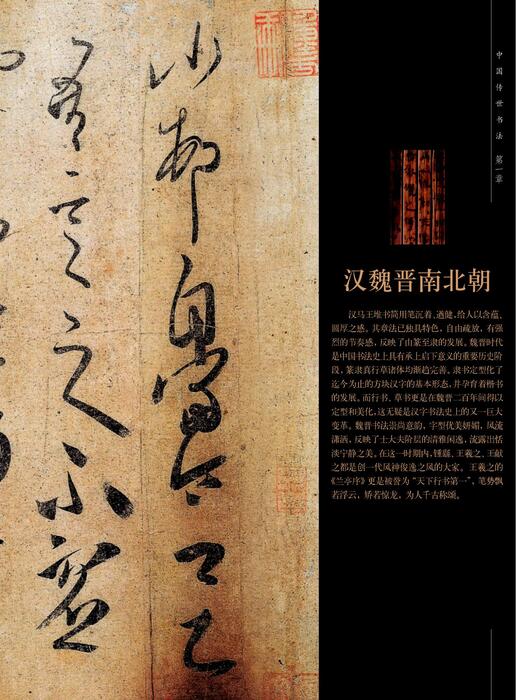 中国传世书法 第一章
汉魏晋南北朝
汉马王堆书简用笔沉着、遒健,给人以含蕴、
圆厚之感。其章法已独具特色,自由疏放,有强
烈的节奏感,反映了由篆至隶的发展。魏晋时代
是中国书法史上具有承上启下意义的重要历史阶
段,篆隶真行草诸体均渐趋完善。隶书定型化了
迄今为止的方块汉字的基本形态,并孕育着楷书
的发展。而行书、草书更是在魏晋二百年间得以
定型和美化,这无疑是汉字书法史上的又一巨大
变革。魏晋书法崇尚意韵,字型优美妍媚,风流
潇洒,反映了士大夫阶层的清雅闲逸,流露出恬
淡宁静之美。在这一时期内,锺繇、王羲之、王献
之都是创一代风神俊逸之风的大家。王羲之的
《兰亭序》更是被誉为“天下行书第一”,笔势飘
若浮云,矫若惊龙,为人千古称颂。